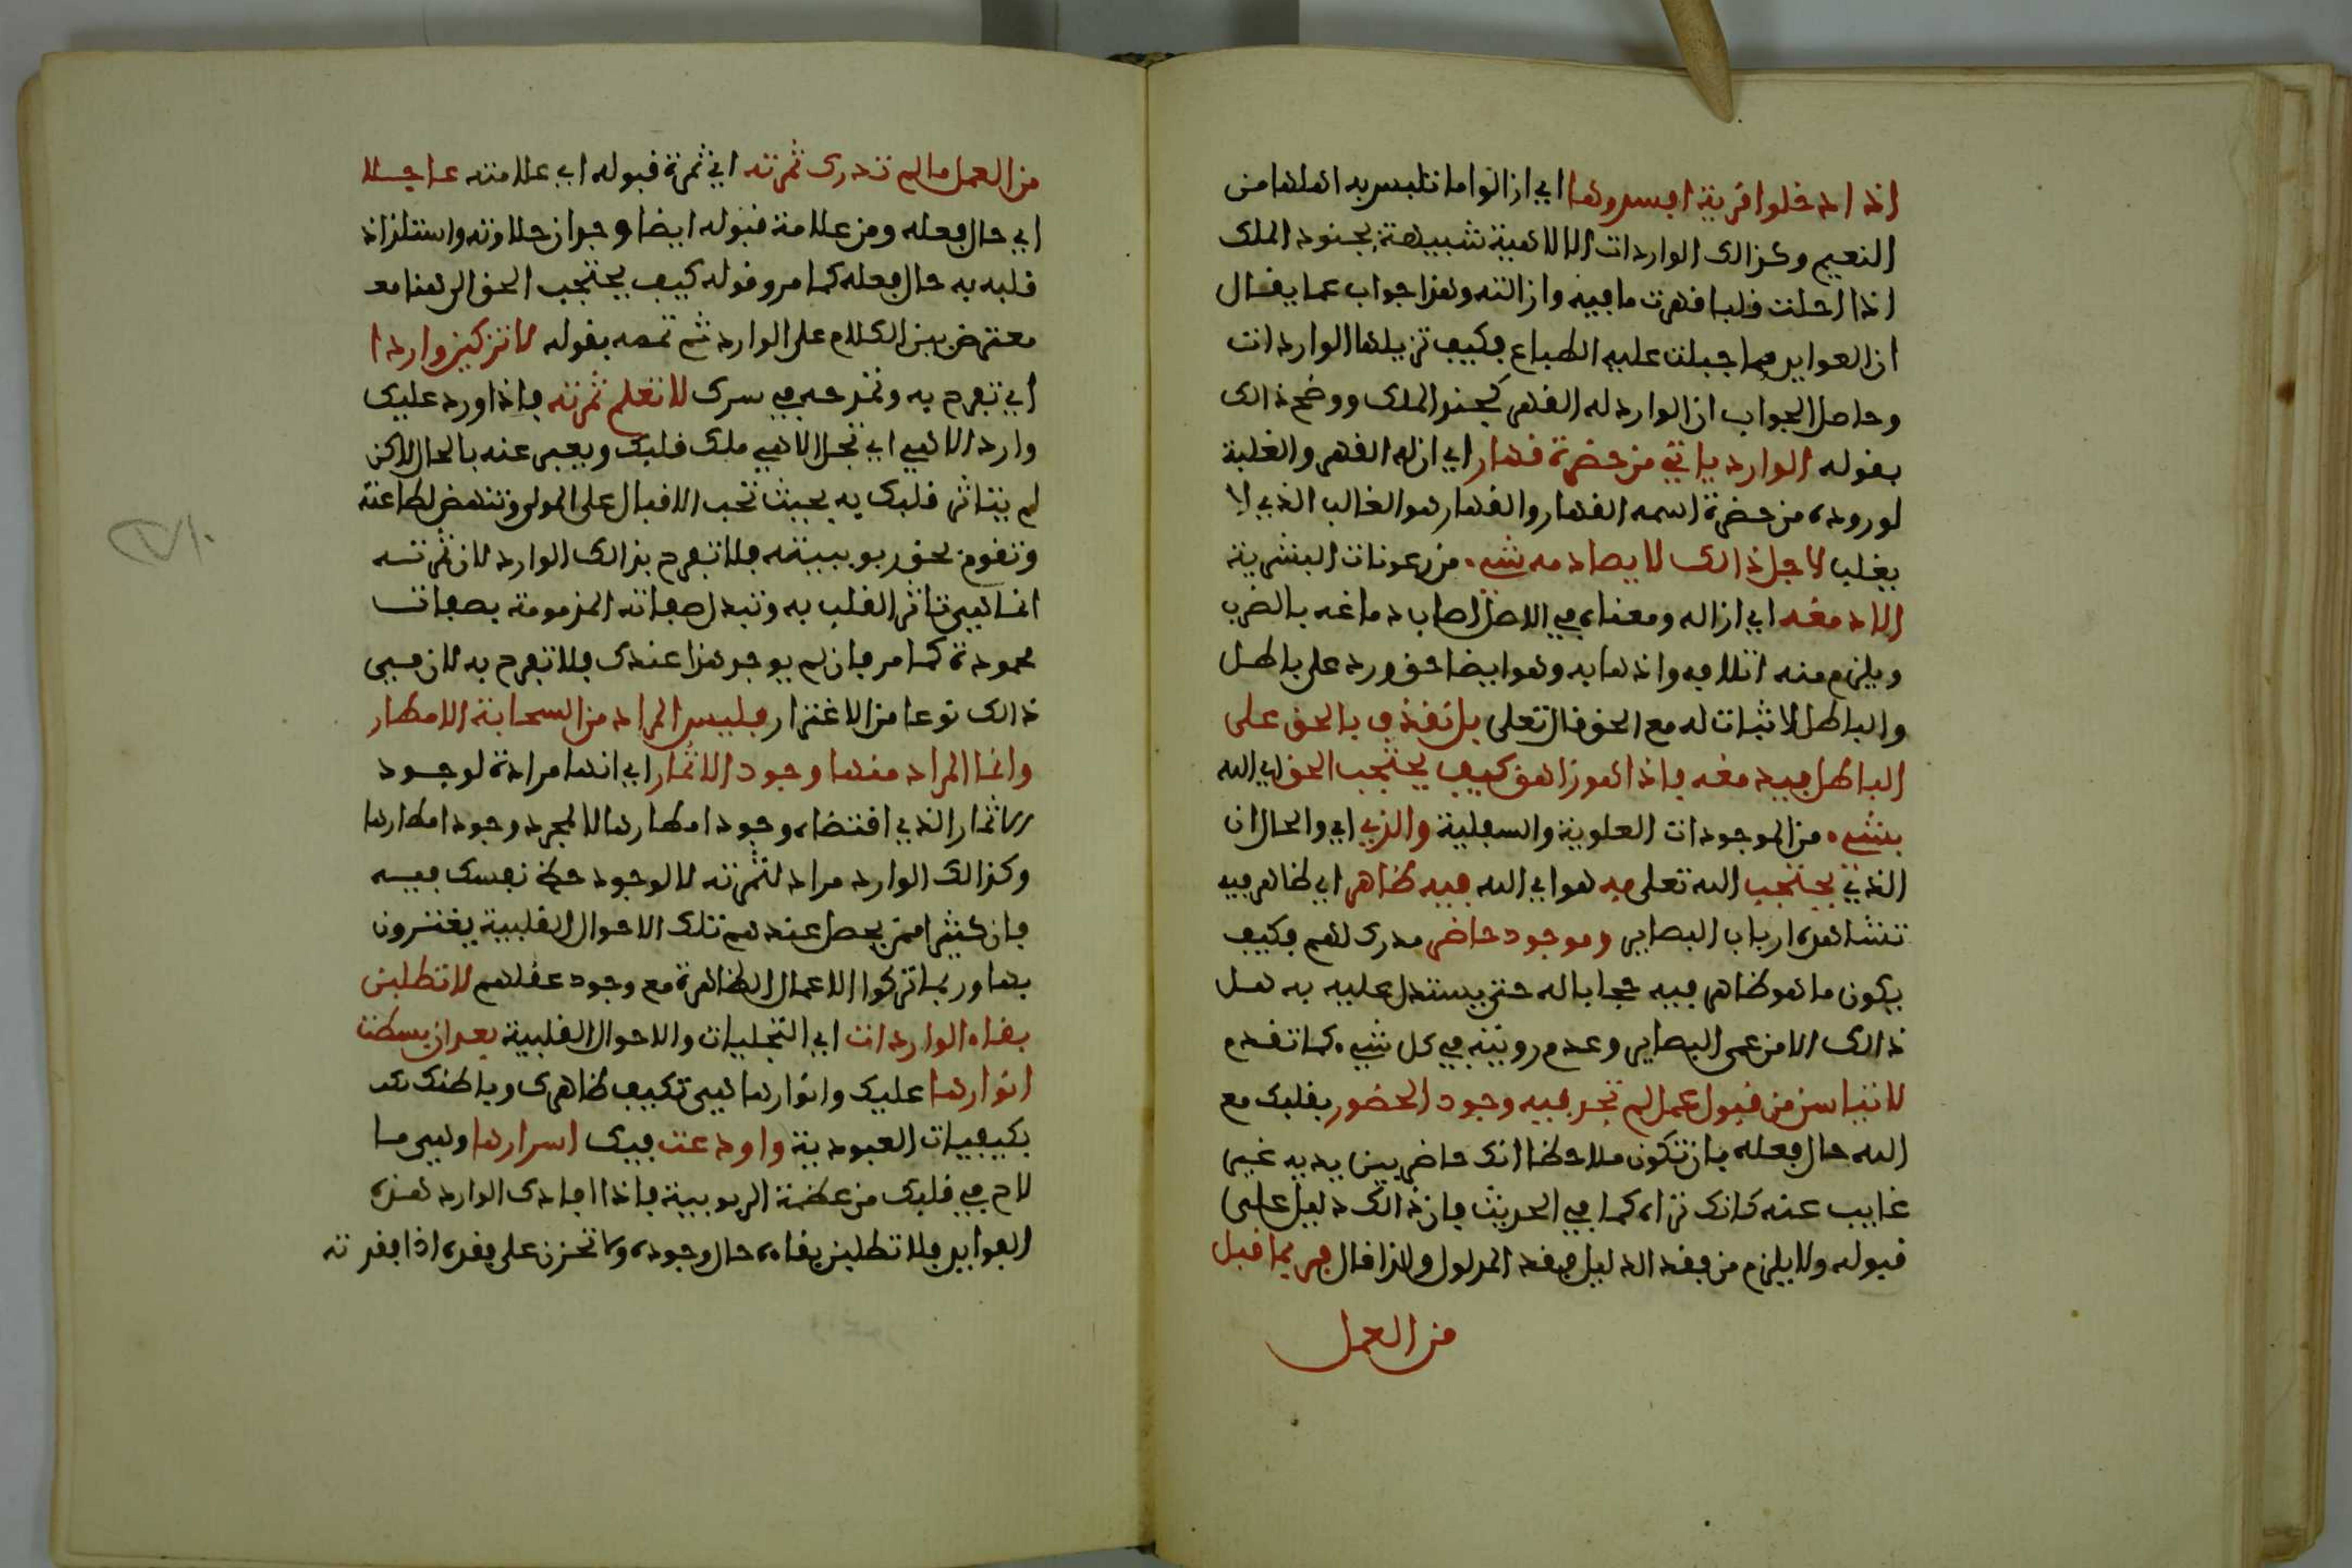 اذا دخلوا قرية افسدوها اي ازالوا ما تلبس به اهلها من
النعيم وكذالك الواردات الالاهية شبيهة بجنود الملك
اذا احلت قلبا قهرت ما فيه وازالته وهذا جواب عما يقال
ان العوايد مما جبلت عليه الطباع فكيف تزيلها الواردات
وحاصل الجواب ان الوارد له القهر كجند الملك ووضح ذالك
بقوله الوارد ياتي من حضرة قهار اي ان له القهر والغلبة
لوروده من حضرة اسمه القهار والقهار هو الغالب الذي لا
يغلب لاجل ذالك لا يصادمه شيء من رعونات البشرية
الا دمغه اي ازاله ومعناه في الاصل اصاب دماغه بالضرب
ويلزم منه اتلافه واذهابه وهو ايضا حق ورد على باطل
والباطل لا ثبات له مع الحق قال تعلى بل نقذف بالحق على
الباطل فيدمغه فاذا هو زاهق كيف يحتجب الحق اي الله
بشيء من الموجودات العلوية والسفلية والذي اي والحال ان
الذي يحتجب الله تعلى به هو اي الله فيه ظاهر اي ظاهر فيه
تشاهده ارباب البصاير وموجود حاضر مدرك لهم فكيف
يكون ما هو ظاهر فيه حجابا له حتى يستدل عليه به هل
ذالك الا من عمى البصاير وعدم رويته في كل شيء كما تقدم
لا تياسن من قبول عمل لم تجد فيه وجود الحضور بقلبك مع
الله حال فعله بان تكون ملاحظا انك حاضر بين يديه غير
غايب عنه كانك تراه كما في الحديث فان ذالك دليل على
قبوله ولا يلزم من فقد الدليل فقد المدلول ولذا قال فربما قبل
من العمل
من العمل ما لم تدرك ثمرته اي ثمرة قبوله اي علامته عاجلا
اي حال فعله ومن علامة قبوله ايضا وجدان حلاوته واستلذاذ
قلبه به حال فعله كما مر وقوله كيف يحتجب الحق الى هنا معـ
معترض بين الكلام على الوارد ثم تممه بقوله لا تزكين واردا
اي تفرح به وتمدحه في سرك لا تعلم ثمرته فاذا ورد عليك
وارد الاهي اي تجل الاهي ملك قلبك ويعبر عنه بالحال لاكن
لم يتاثر قلبك به بحيث تحب الاقبال على المولى وتنهض لطاعته
وتقوم بحقوق ربوبيته فلا تفرح بذالك الوارد لان ثمرته
انما هي تاثر القلب به وتبدل صفاته المذمومة بصفات
محمودة كما مر فان لم يوجد هذا عندك فلا تفرح به لان في
ذالك نوعا من الاغترار فليس المراد من السحابة الامطار
وانما المراد منها وجود الاثمار اي انها مرادة لوجود
الاثمار الذي اقتضاه وجود امطارها لا لمجرد وجود امطارها
وكذالك الوارد مراد لثمرته لا لوجود حظ نفسك فيه
فان كثيرا ممن يحصل عندهم تلك الاحوال القلبية يغترون
بها وربما تركوا الاعمال الظاهرة مع وجود عقلهم لا تطلبن
بقاء الواردات اي التجليات والاحوال القلبية بعد ان بسطت
انوارها عليك وانوارها هي تكييف ظاهرك وباطنك
بكيفيات العبودية واودعت فيك اسرارها وهي ما
لاح في قلبك من عظمة الربوبية فاذا افادك الوارد هذه
الفوايد فلا تطلبن بقاءه حال وجوده ولا تحزن على فقده اذا فقدته